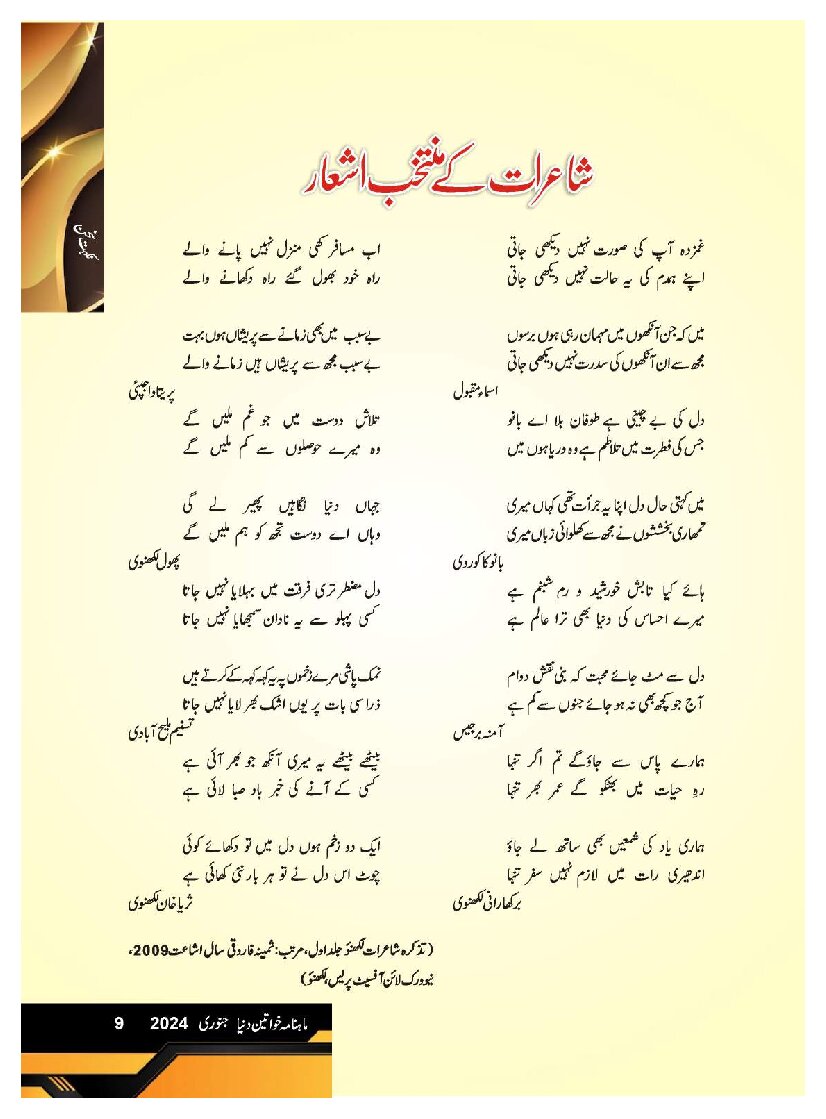 شاعرات کے منتخب اشعار
نکہت سخن
غمزدہ آپ کی صورت نہیں دیکھی جاتی
اپنے ہمدم کی یہ حالت نہیں دیکھی جاتی
میں کہ جن آنکھوں میں مہمان رہی ہوں برسوں
مجھ سے ان آنکھوں کی سدرت نہیں دیکھی جاتی
اسماء مقبول
دل کی بے چینی ہے طوفان بلا اے بانو
جس کی فطرت میں تلاطم ہے وہ دریا ہوں میں
میں کہتی حال دل اپنا یہ جرأت تھی کہاں میری
تمھاری بخششوں نے مجھ سے کھلوائی زباں میری
بانو کاکوروی
ہائے کیا تابش خورشید و رم شبنم ہے
میرے احساس کی دنیا بھی ترا عالم ہے
دل سے مٹ جائے محبت کہ بنی نقش دوام
آج جو کچھ بھی نہ ہو جائے جنوں سے کم ہے
آمنہ برجیس
ہمارے پاس سے جاؤگے تم اگر تنہا
رہِ حیات میں بھٹکو گے عمر بھر تنہا
ہماری یاد کی شمعیں بھی ساتھ لے جاؤ
اندھیری رات میں لازم نہیں سفر تنہا
برکھا رانی لکھنوی
اب مسافر کبھی منزل نہیں پانے والے
راہ خود بھول گئے راہ دکھانے والے
بے سبب میں بھی زمانے سے پریشاں ہوں بہت
بے سبب مجھ سے پریشاں ہیں زمانے والے
پریتا واجپئی
تلاش دوست میں جو غم ملیں گے
وہ میرے حوصلوں سے کم ملیں گے
جہاں دنیا نگاہیں پھیر لے گی
وہاں اے دوست تجھ کو ہم ملیں گے
پھول لکھنوی
دل مضطر تری فرقت میں بہلایا نہیں جاتا
کسی پہلو سے یہ نادان سمجھایا نہیں جاتا
نمک پاشی مرے زخموں پہ یہ کہہ کہہ کے کرتے ہیں
ذرا سی بات پر یوں اشک بھر لایا نہیں جاتا
تسنیم ملیح آبادی
بیٹھے بیٹھے یہ میری آنکھ جو بھر آئی ہے
کسی کے آنے کی خبر باد صبا لائی ہے
ایک دو زخم ہوں دل میں تو دکھائے کوئی
چوٹ اس دل نے تو ہر بار نئی کھائی ہے
ثریا خان لکھنوی
(تذکرہ شاعرات لکھنؤ جلد اول، مرتب: ثمینہ فاروقی سال اشاعت 2009،
نیو ورک لائن آفسیٹ پریس، لکھنؤ)
ماہنامہ خواتین دنیا جنوری 2024 9